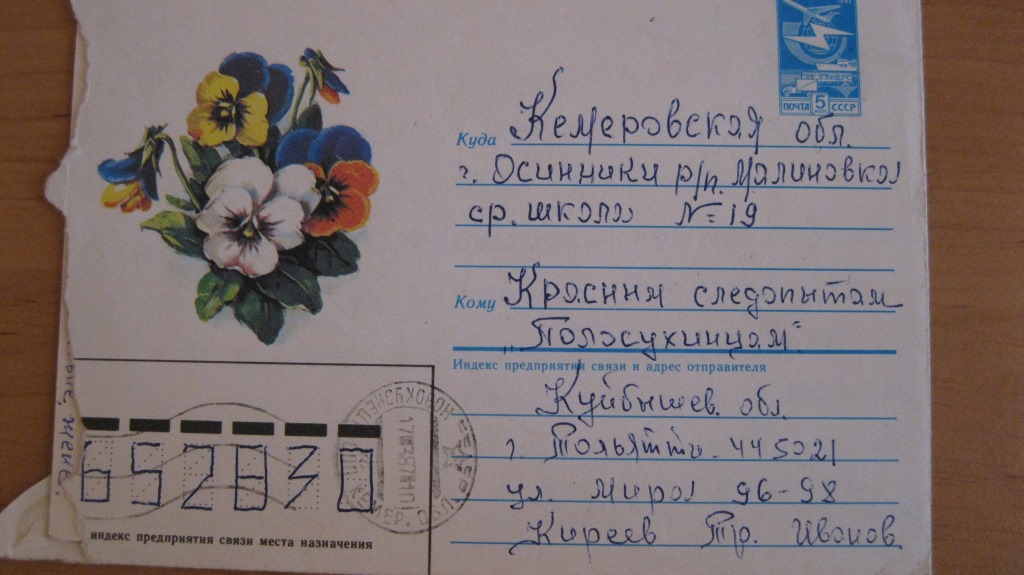 ПОЧТА 5 КОП СССР
Куда Кемеровская обл.
г. Осинники р/п. Малиновка
ср. школа № 19
Кому Красным следопытам
„Полосухинцам"
Индекс предприятия связи и адрес отправителя
Куйбышев. обл.
г. Тольятти - 445021
ул. Мира 96-98
Киреев Тр. Иванов.
НОВОКУЗНЕЦ
652830
индекс предприятия связи места назначения
жене